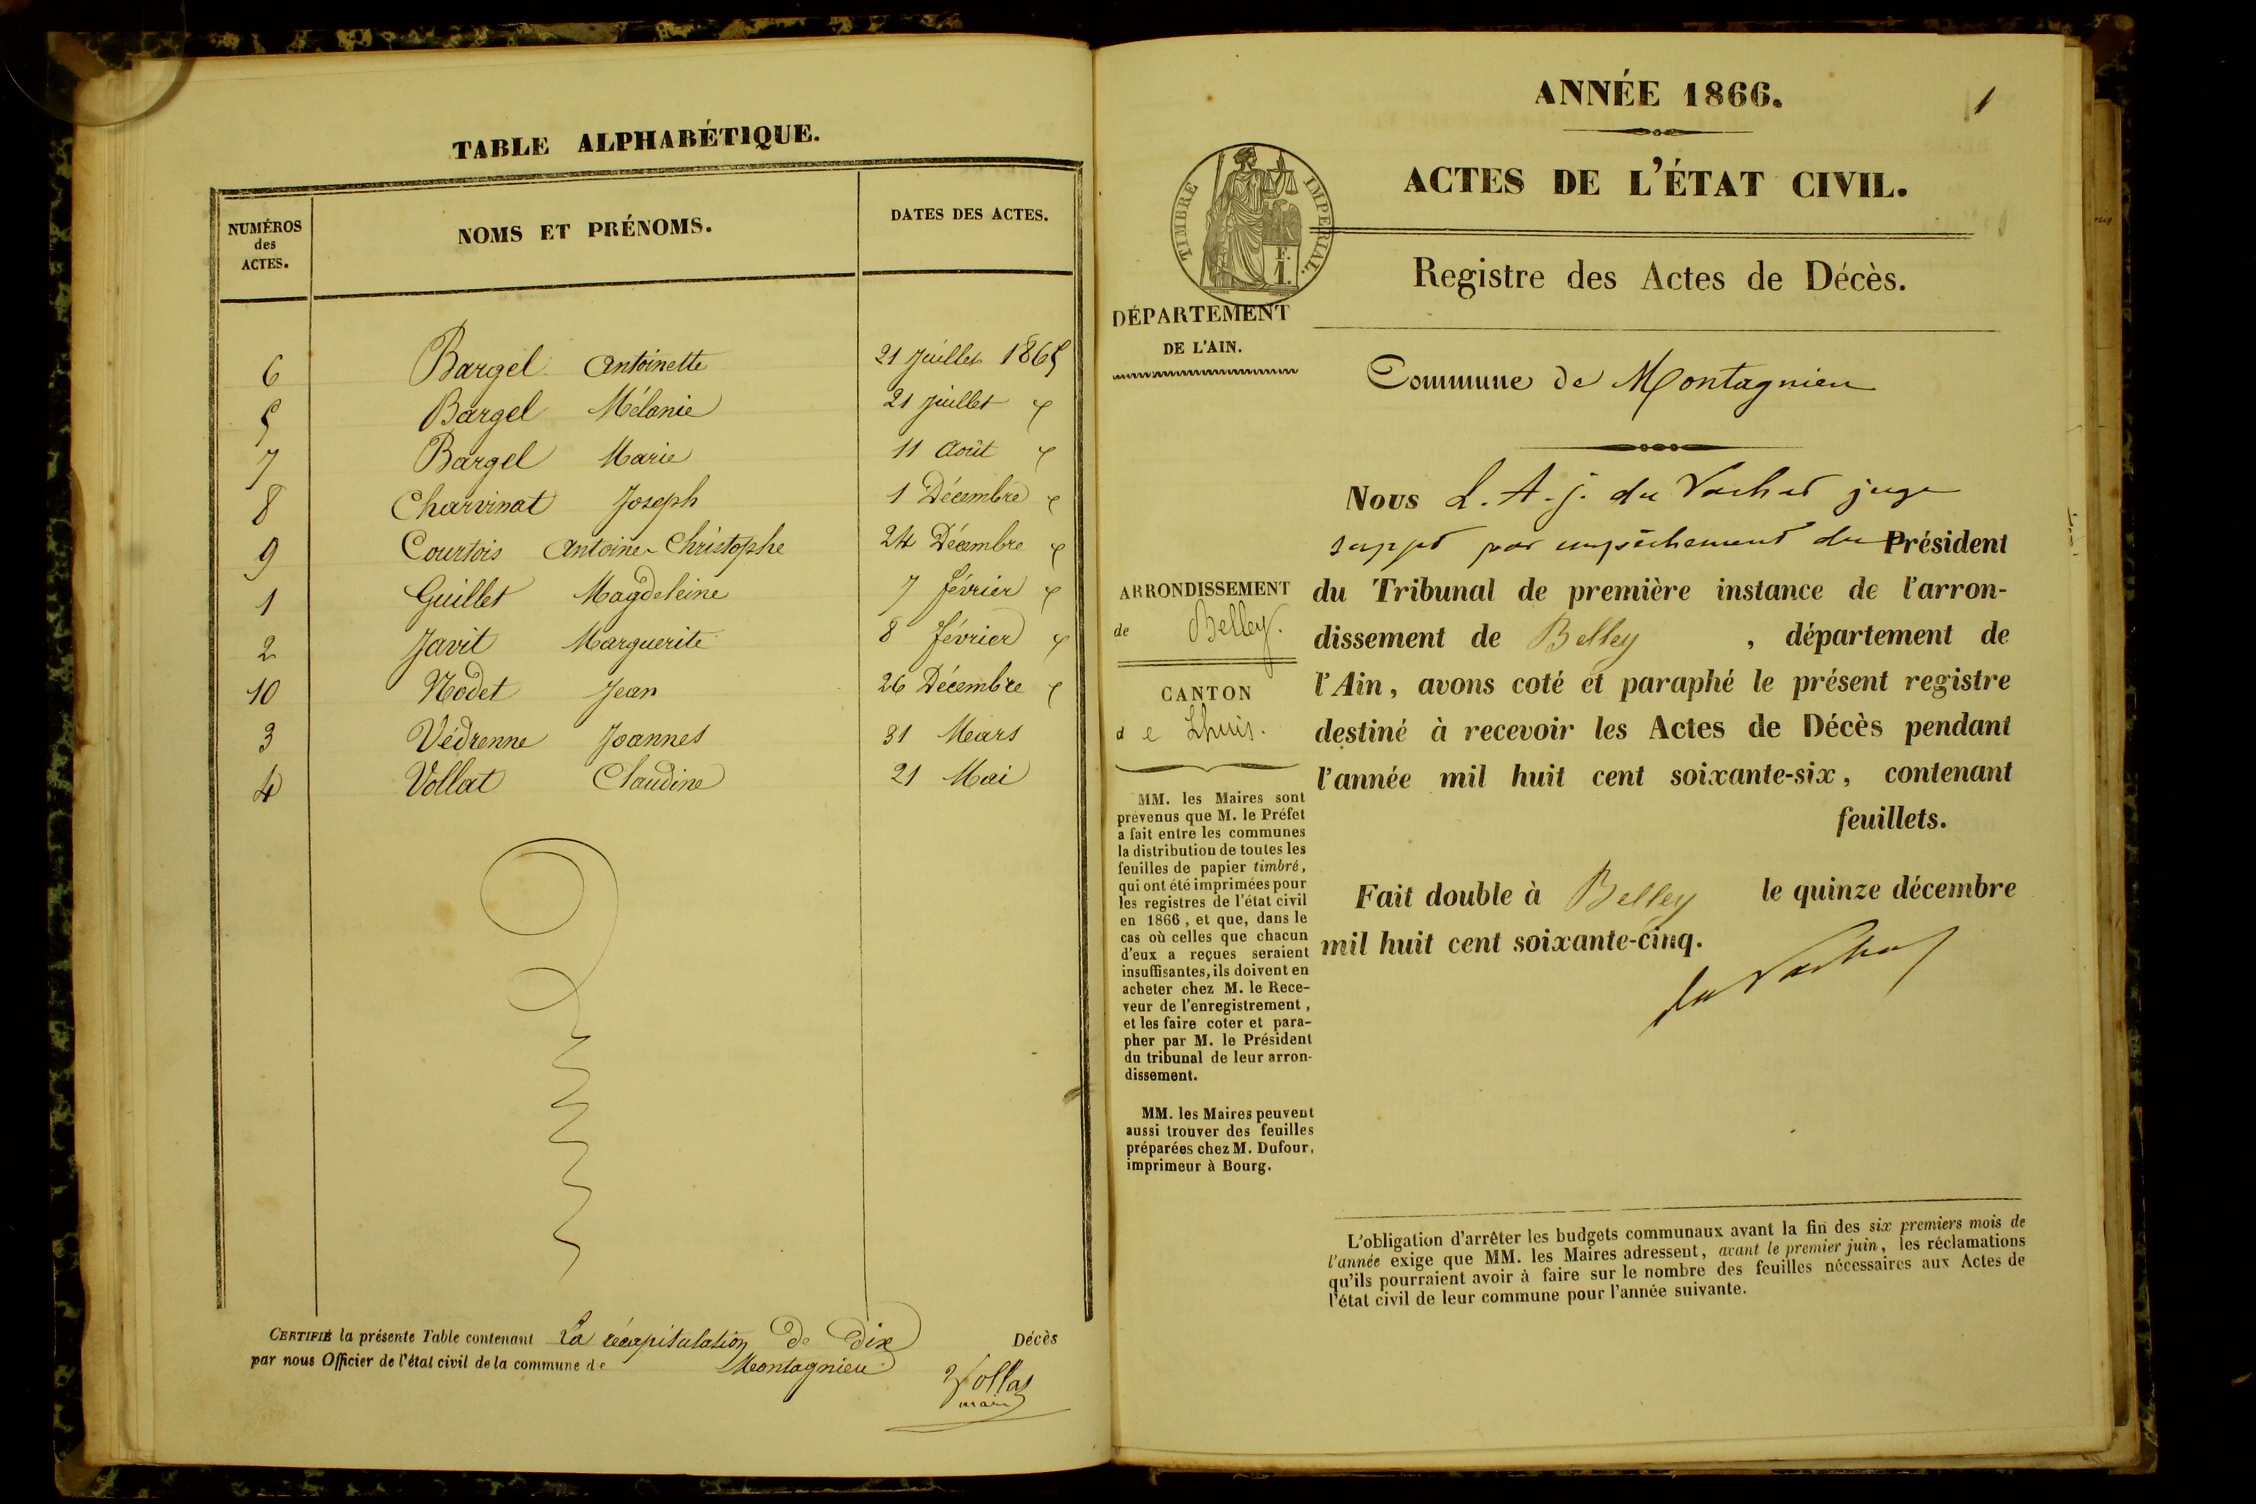 TABLE ALPHABÉTIQUE.
NUMÉROS des ACTES.
NOMS ET PRÉNOMS.
DATES DES ACTES.
6 Bargel Antoinette 21 juillet 1865
5 Bargel Mélanie 21 juillet "
7 Bargel Marie 11 Août "
8 Charvinat Joseph 1 Décembre "
9 Courtois Antoine-Christophe 24 Décembre "
1 Guillet Magdeleine 7 février "
2 Javit Marguerite 8 février "
10 Nodet Jean 26 Décembre "
3 Védrenne Joannes 31 Mars
4 Vollat Claudine 21 Mai
CERTIFIÉ la présente Table contenant La récapitulation de dix Décès
par nous Officier de l'état civil de la commune de Montagnieu
Vollat
maire
ANNÉE 1866.
1
ACTES DE L'ÉTAT CIVIL.
TIMBRE IMPERIAL.
F.
1.
Registre des Actes de Décès.
DÉPARTEMENT
DE L'AIN.
Commune de Montagnieu
ARRONDISSEMENT
de Belley.
CANTON
de Lhuis.
MM. les Maires sont
prévenus que M. le Préfet
a fait entre les communes
la distribution de toutes les
feuilles de papier timbré,
qui ont été imprimées pour
les registres de l'état civil
en 1866, et que, dans le
cas où celles que chacun
d'eux a reçues seraient
insuffisantes, ils doivent en
acheter chez M. le Rece-
veur de l'enregistrement,
et les faire coter et para-
pher par M. le Président
du tribunal de leur arron-
dissement.
MM. les Maires peuvent
aussi trouver des feuilles
préparées chez M. Dufour,
imprimeur à Bourg.
Nous L. A. j. du Vachat juge
suppt par empêchement du Président
du Tribunal de première instance de l'arron-
dissement de Belley, département de
l'Ain, avons coté et paraphé le présent registre
destiné à recevoir les Actes de Décès pendant
l'année mil huit cent soixante-six, contenant
feuillets.
Fait double à Belley le quinze décembre
mil huit cent soixante-cinq.
du Vachat
L'obligation d'arrêter les budgets communaux avant la fin des six premiers mois de
l'année exige que MM. les Maires adressent, avant le premier juin, les réclamations
qu'ils pourraient avoir à faire sur le nombre des feuilles nécessaires aux Actes de
l'état civil de leur commune pour l'année suivante.